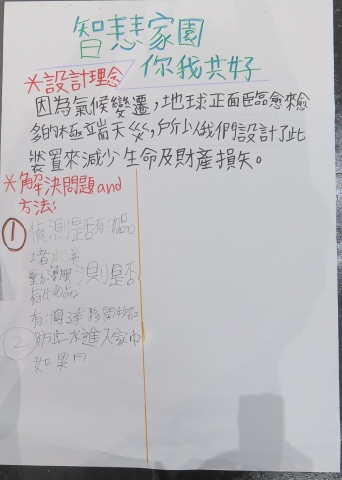 智慧家園
你我共好
*設計理念
因為氣候變遷，地球正面臨愈來愈
多的極端天災，所以我們設計了此
裝置來減少生命及財產損失。
*解決問題and
方法：
① 偵測是否有物品
堵水溝
測是否
有物品
② 防止水進入家中
如果門